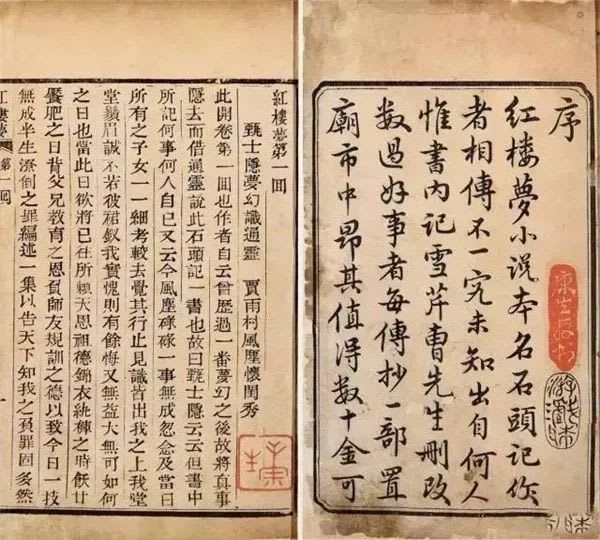 序
紅楼夢小説本名石頭記作
者相傳不一究未知出自何人
惟書内記雪芹曹先生刪改
数過好事者每傳抄一部置
廟市中昂其值得数十金可
紅樓夢第一回
甄士隱夢幻識通靈 賈雨村風塵懷閨秀
此開卷第一回也作者自云曾歷過一番夢幻之後故將真事
隱去而借通靈說此石頭記一書也故曰甄士隱云云但書中
所記何事何人自己又云今風塵碌碌一事無成忽念及當日
所有之子女一一細考較去覺其行止見識皆出我之上我堂
堂鬚眉誠不若彼裙釵我實愧則有餘悔又無益大無可如何
之日也當此日欲將已往所賴天恩祖德錦衣紈袴之時飫甘
饜肥之日背父兄教育之恩負師友規訓之德以致今日一技
無成半生潦倒之罪編述一集以告天下知我之負罪固多然
紅樓夢 第一回 一